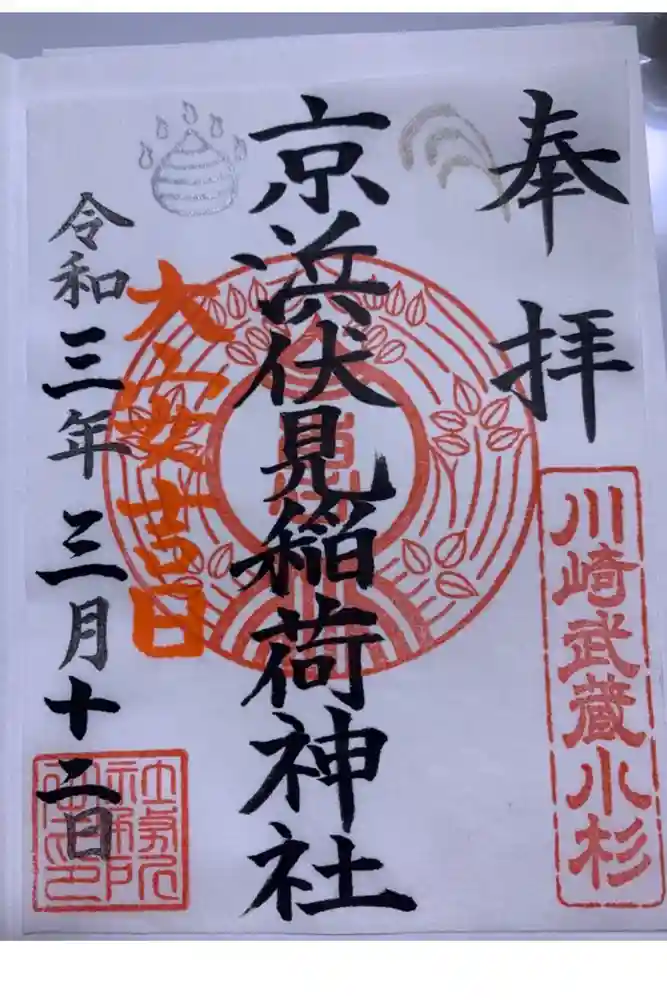 奉拝
川崎武蔵小杉
京浜伏見稲荷神社
大安吉日
令和三年三月十二日
社務所